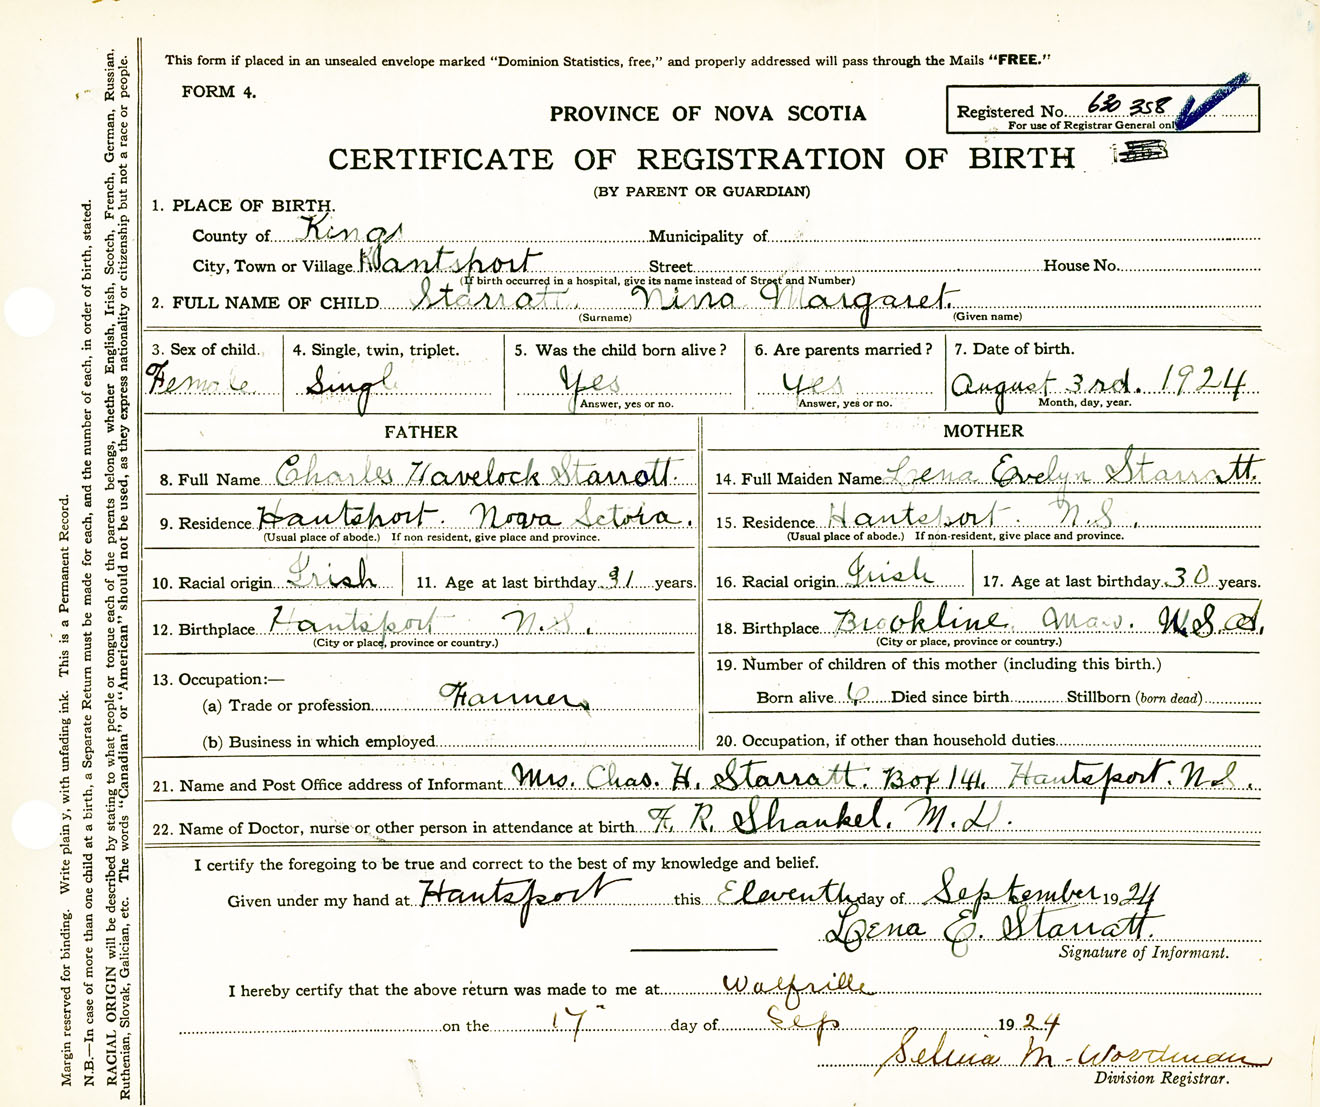 This form if placed in an unsealed envelope marked "Dominion Statistics, free," and properly addressed will pass through the Mails "FREE."
FORM 4.
PROVINCE OF NOVA SCOTIA
Registered No. 630 358
For use of Registrar General only
CERTIFICATE OF REGISTRATION OF BIRTH
(BY PARENT OR GUARDIAN)
1. PLACE OF BIRTH.
County of Kings Municipality of
City, Town or Village Hantsport Street House No.
(If birth occurred in a hospital, give its name instead of Street and Number)
2. FULL NAME OF CHILD Starratt Nina Margaret.
(Surname) (Given name)
3. Sex of child. 4. Single, twin, triplet. 5. Was the child born alive? 6. Are parents married? 7. Date of birth.
Female Singl Yes yes August 3rd. 1924
Answer, yes or no. Answer, yes or no. Month, day, year.
FATHER MOTHER
8. Full Name Charles Havelock Starratt. 14. Full Maiden Name Lena Evelyn Starratt.
9. Residence Hantsport. Nova Sctoia. 15. Residence Hantsport. N.S.
(Usual place of abode.) If non resident, give place and province. (Usual place of abode.) If non-resident, give place and province.
10. Racial origin Irish 11. Age at last birthday 31 years. 16. Racial origin Irish 17. Age at last birthday 30 years.
12. Birthplace Hantsport N.S. 18. Birthplace Brookline Mass. U.S.A.
(City or place, province or country.) (City or place, province or country.)
13. Occupation:— 19. Number of children of this mother (including this birth.)
(a) Trade or profession Farmer Born alive 6 Died since birth Stillborn (born dead)
(b) Business in which employed 20. Occupation, if other than household duties
21. Name and Post Office address of Informant Mrs. Chas. H. Starratt. Box 141. Hantsport. N.S.
22. Name of Doctor, nurse or other person in attendance at birth F. R. Shankel. M.D.
I certify the foregoing to be true and correct to the best of my knowledge and belief.
Given under my hand at Hantsport this Eleventh day of September 1924
Lena E. Starratt.
Signature of Informant.
I hereby certify that the above return was made to me at Wolfville
on the 17 day of Sep 1924
Selina M. Woodman
Division Registrar.
Margin reserved for binding. Write plain y, with unfading ink. This is a Permanent Record.
N.B.—In case of more than one child at a birth, a Separate Return must be made for each, and the number of each, in order of birth, stated.
RACIAL ORIGIN will be described by stating to what people or tongue each of the parents belongs, whether English, Irish, Scotch, French, German, Russian,
Ruthenian, Slovak, Galician, etc. The words "Canadian" or "American" should not be used, as they express nationality or citizenship but not a race or people.